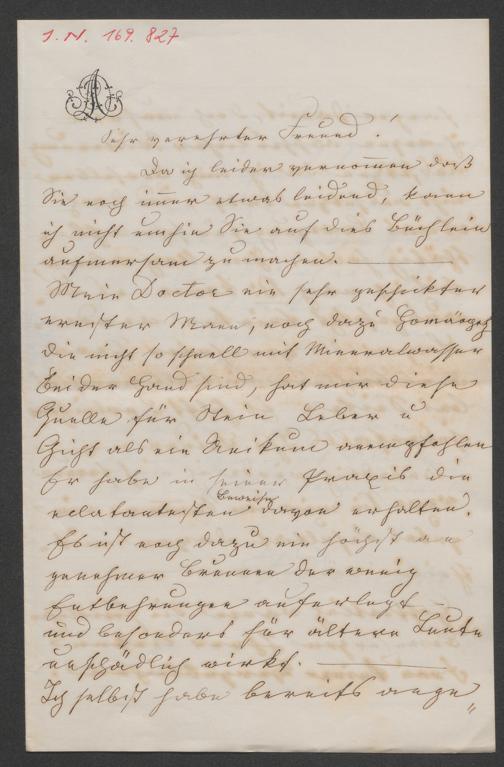 I. N. 169.827
Sehr verehrter Freund!
Da ich leider vernommen daß
Sie noch immer etwas leidend, kann
ich nicht umhin Sie auf dies Büchlein
aufmersam zu machen.
Mein Doctor ein sehr geschickter
ernster Mann, noch dazu Homöopath
die nicht so schnell mit Mineralwasser
bei der Hand sind, hat mir diese
Quelle für Stein Leber u
Gicht als ein Unikum anempfohlen
Er habe in seiner Praxis die
eclatantesten Beweise davon erhalten.
Es ist noch dazu ein höchst an
genehmer Brunnen der wenig
Entbehrungen auferlegt –
und besonders für ältere Leute
unschädlich wirkt.
Ich selbst habe bereits ange„